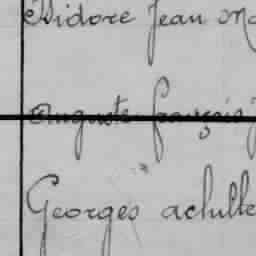 Isidore Jean Ma
Auguste françois
Georges achille